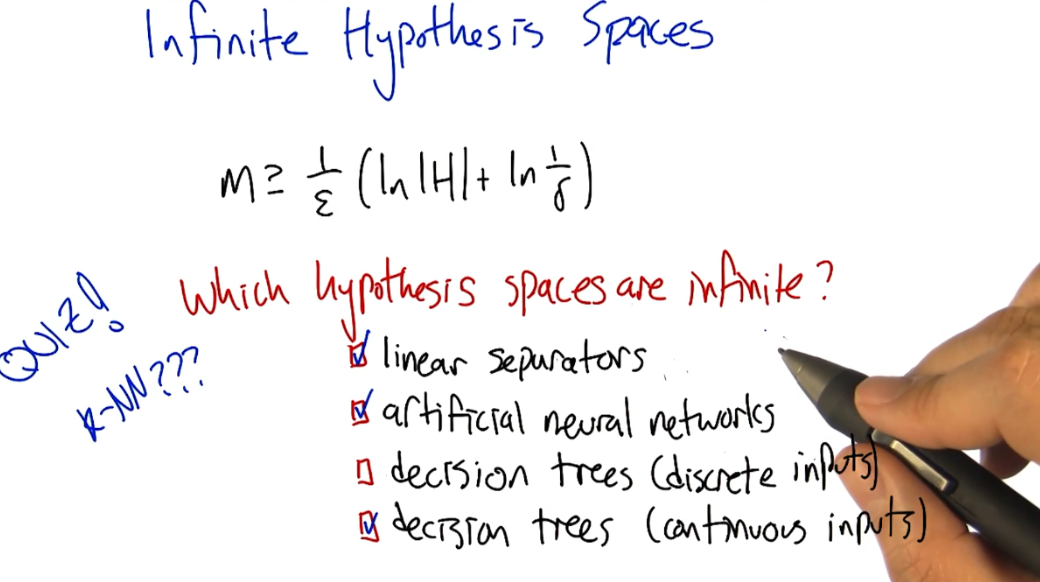 Infinite Hypothesis Spaces
m ≥ 1/ε (ln |H| + ln 1/δ)
QUIZ!
Which hypothesis spaces are infinite?
k-NN???
☑ linear separators
☑ artificial neural networks
☐ decision trees (discrete inputs)
☑ decision trees (continuous inputs)